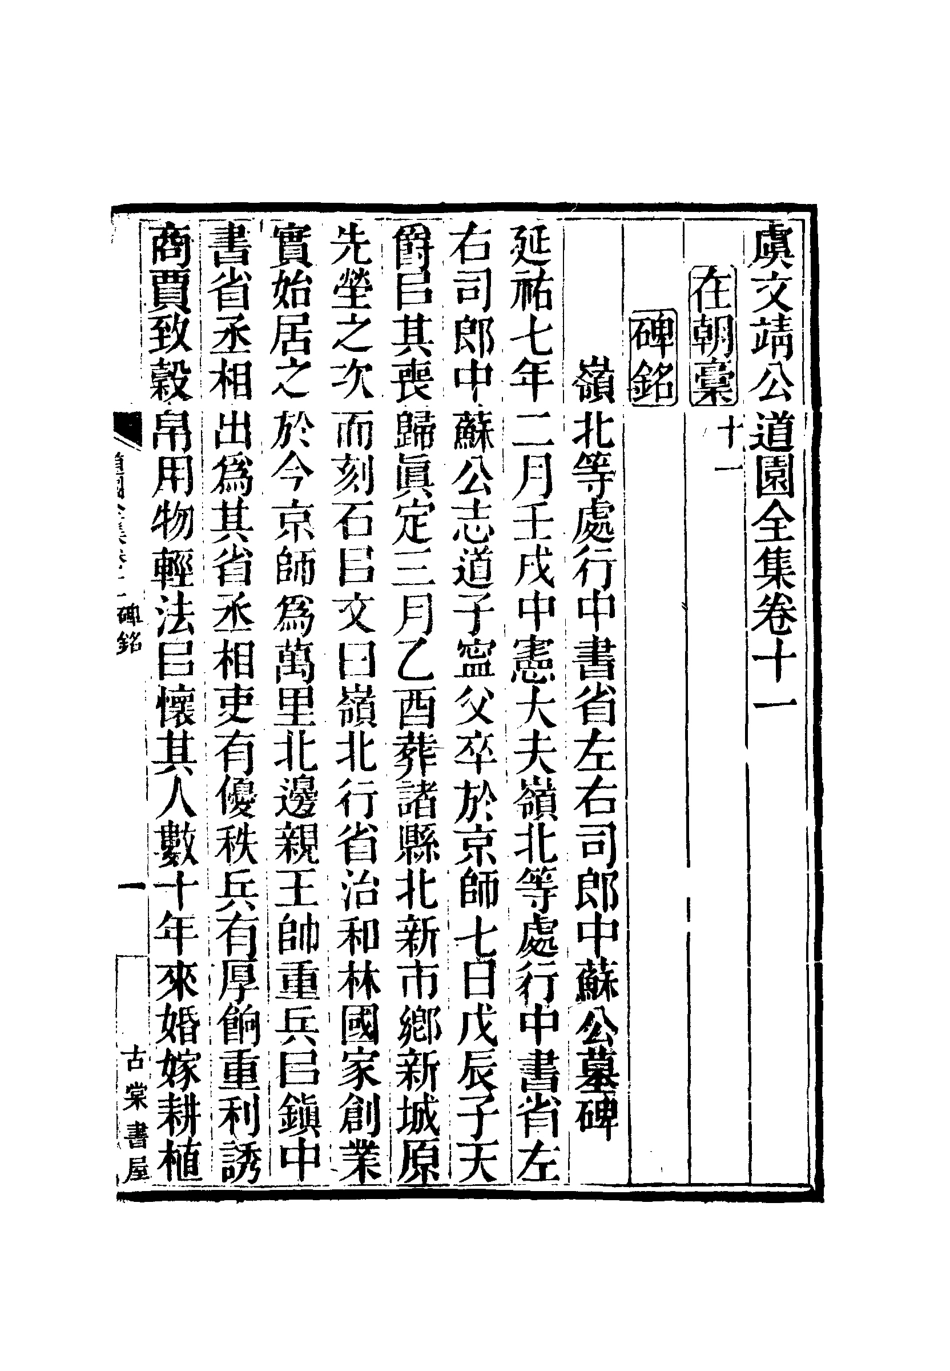 虞文靖公道園全集卷十一
在朝稾十一
碑銘
嶺北等處行中書省左右司郎中蘇公墓碑
延祐七年二月壬戌中憲大夫嶺北等處行中書省左
右司郎中蘇公志道子寧父卒於京師七日戊辰子天
爵㠯其喪歸眞定三月乙酉葬諸縣北新市鄉新城原
先塋之次而刻石㠯文曰嶺北行省治和林國家創業
實始居之於今京師爲萬里北邊親王帥重兵㠯鎭中
書省丞相出爲其省丞相吏有優秩兵有厚餉重利誘
商賈致穀帛用物輕法㠯懷其人數十年來婚嫁耕植
道園全集卷十一碑銘
一
古棠書屋